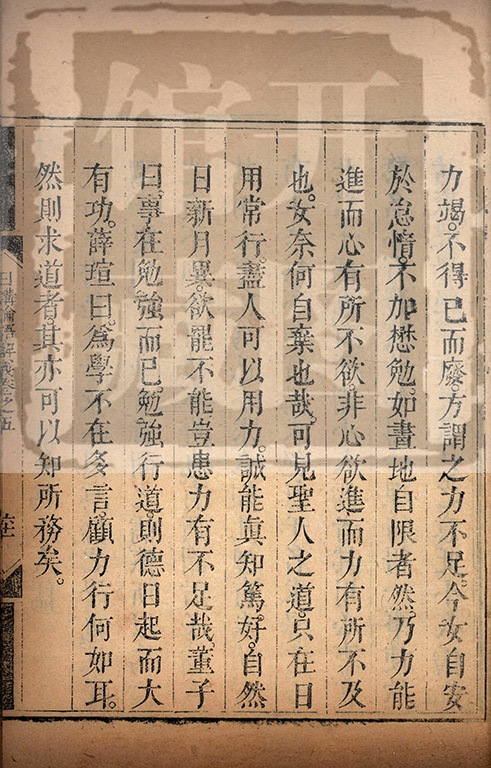 力竭。不得已而廢。方謂之力不足。今女自安
於怠惰。不加懋勉。如畫地自限者然。乃力能
進而心有所不欲。非心欲進而力有所不及
也。女奈何自棄也哉。可見聖人之道。只在日
用常行。盡人可以用力。誠能眞知篤好。自然
日新月異。欲罷不能。豈患力有不足哉。董子
曰。事在勉強而已。勉強行道。則德日起而大
有功。薛瑄曰。爲學不在多言。顧力行何如耳。
然則求道者。其亦可以知所務矣。